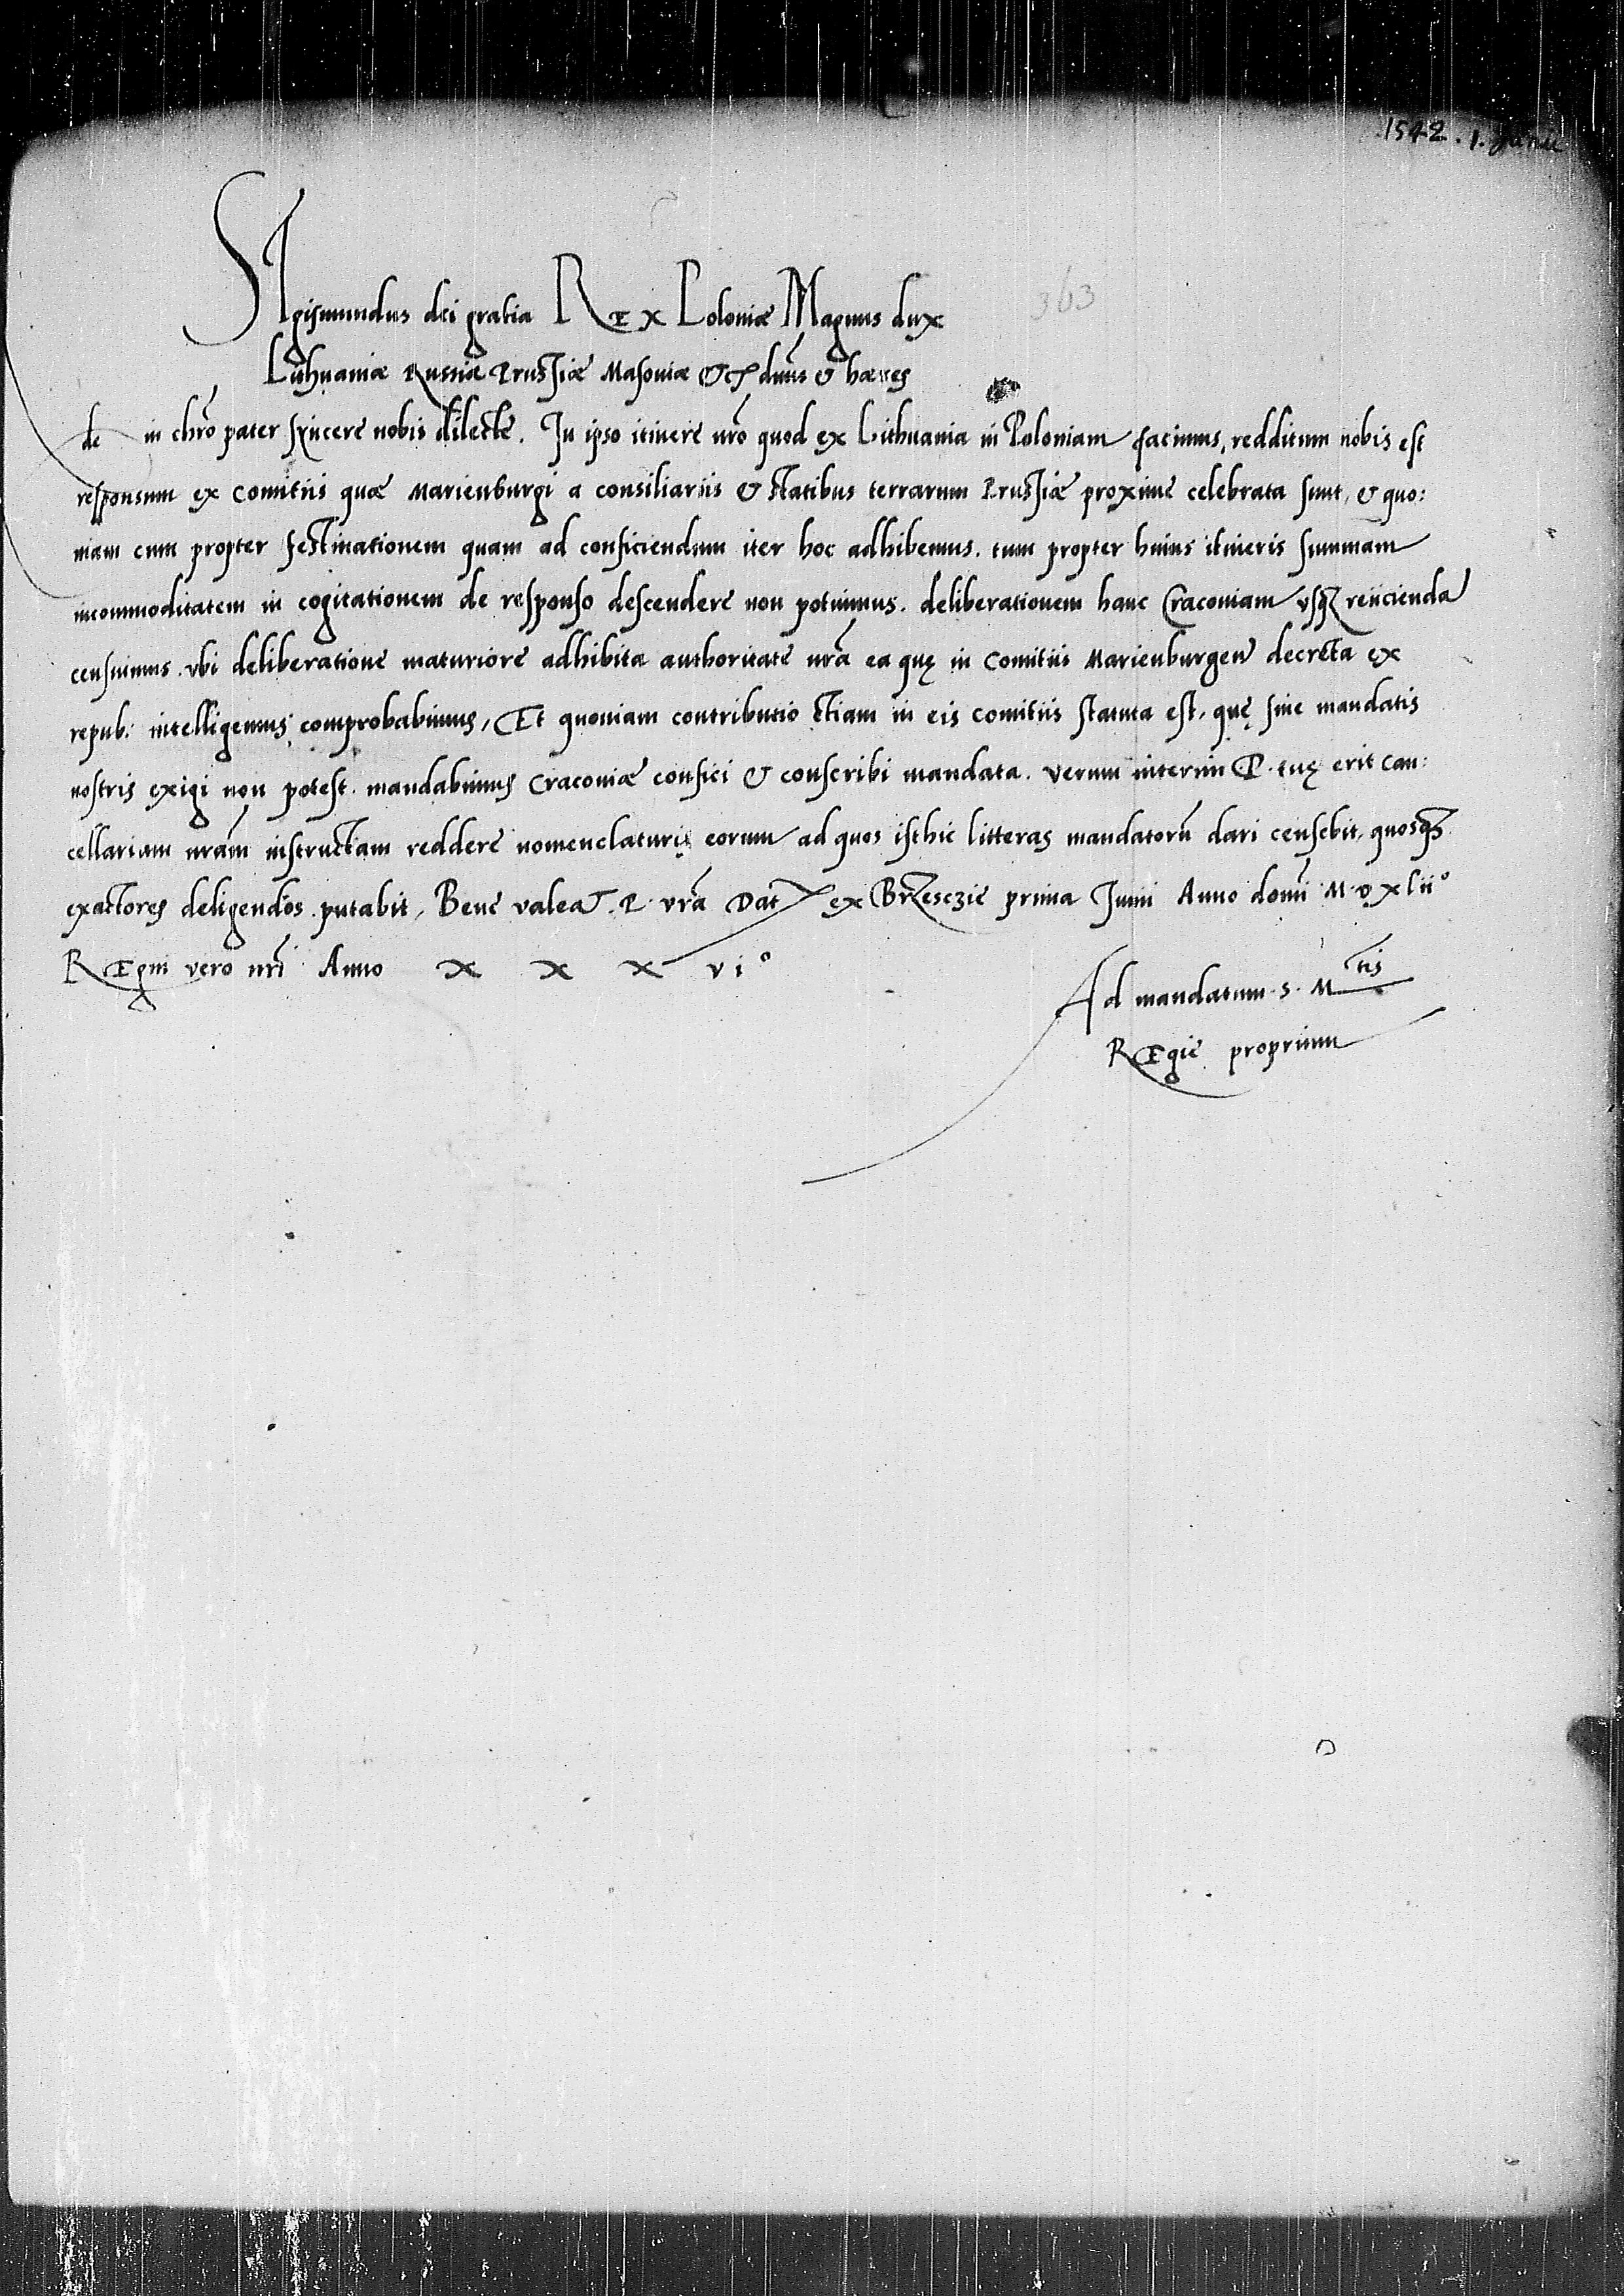 1542. 1. Junii
363
SIgismundus dei gratia REX Poloniæ Magnus dux
Lithuaniæ Russiæ Prussiæ Masoviæ &c dn̄us & hæres
de in chr̄o pater syncere nobis dilecte. In ipso itinere nr̄o quod ex Lithuania in Poloniam facimus, redditum nobis est
responsum ex Comitiis quæ Marienburgi a consiliariis & statibus terrarum Prussiæ proxime celebrata sunt, & quo:
niam cum propter festinationem quam ad conficiendum iter hoc adhibemus. tum propter huius itineris summam
incommoditatem in cogitationem de responso descendere non potuimus. deliberationem hanc Cracoviam usq reiicienda
censuimus. ubi deliberatione maturiore adhibita authoritate nr̄a ea quę in Comitiis Marienburgen decreta ex
repub: intelligemus comprobabimus, Et quoniam contributio etiam in eis comitiis statuta est, quę sine mandatis
nostris exigi non potest. mandabimus Cracoviæ confici & conscribi mandata. Verum interim P. tuę erit Can:
cellariam nr̄am instructam reddere nomenclaturis eorum ad quos isthic litteras mandatorū dari censebit, quosq
exactores deligendos putabit, Bene valeat. P. vr̄a Dat ex Brzesczie prima Junii Anno domī M.D.xlii°
REgni vero nr̄i Anno x x x vi°
Ad mandatum S. M tis
REgie proprium